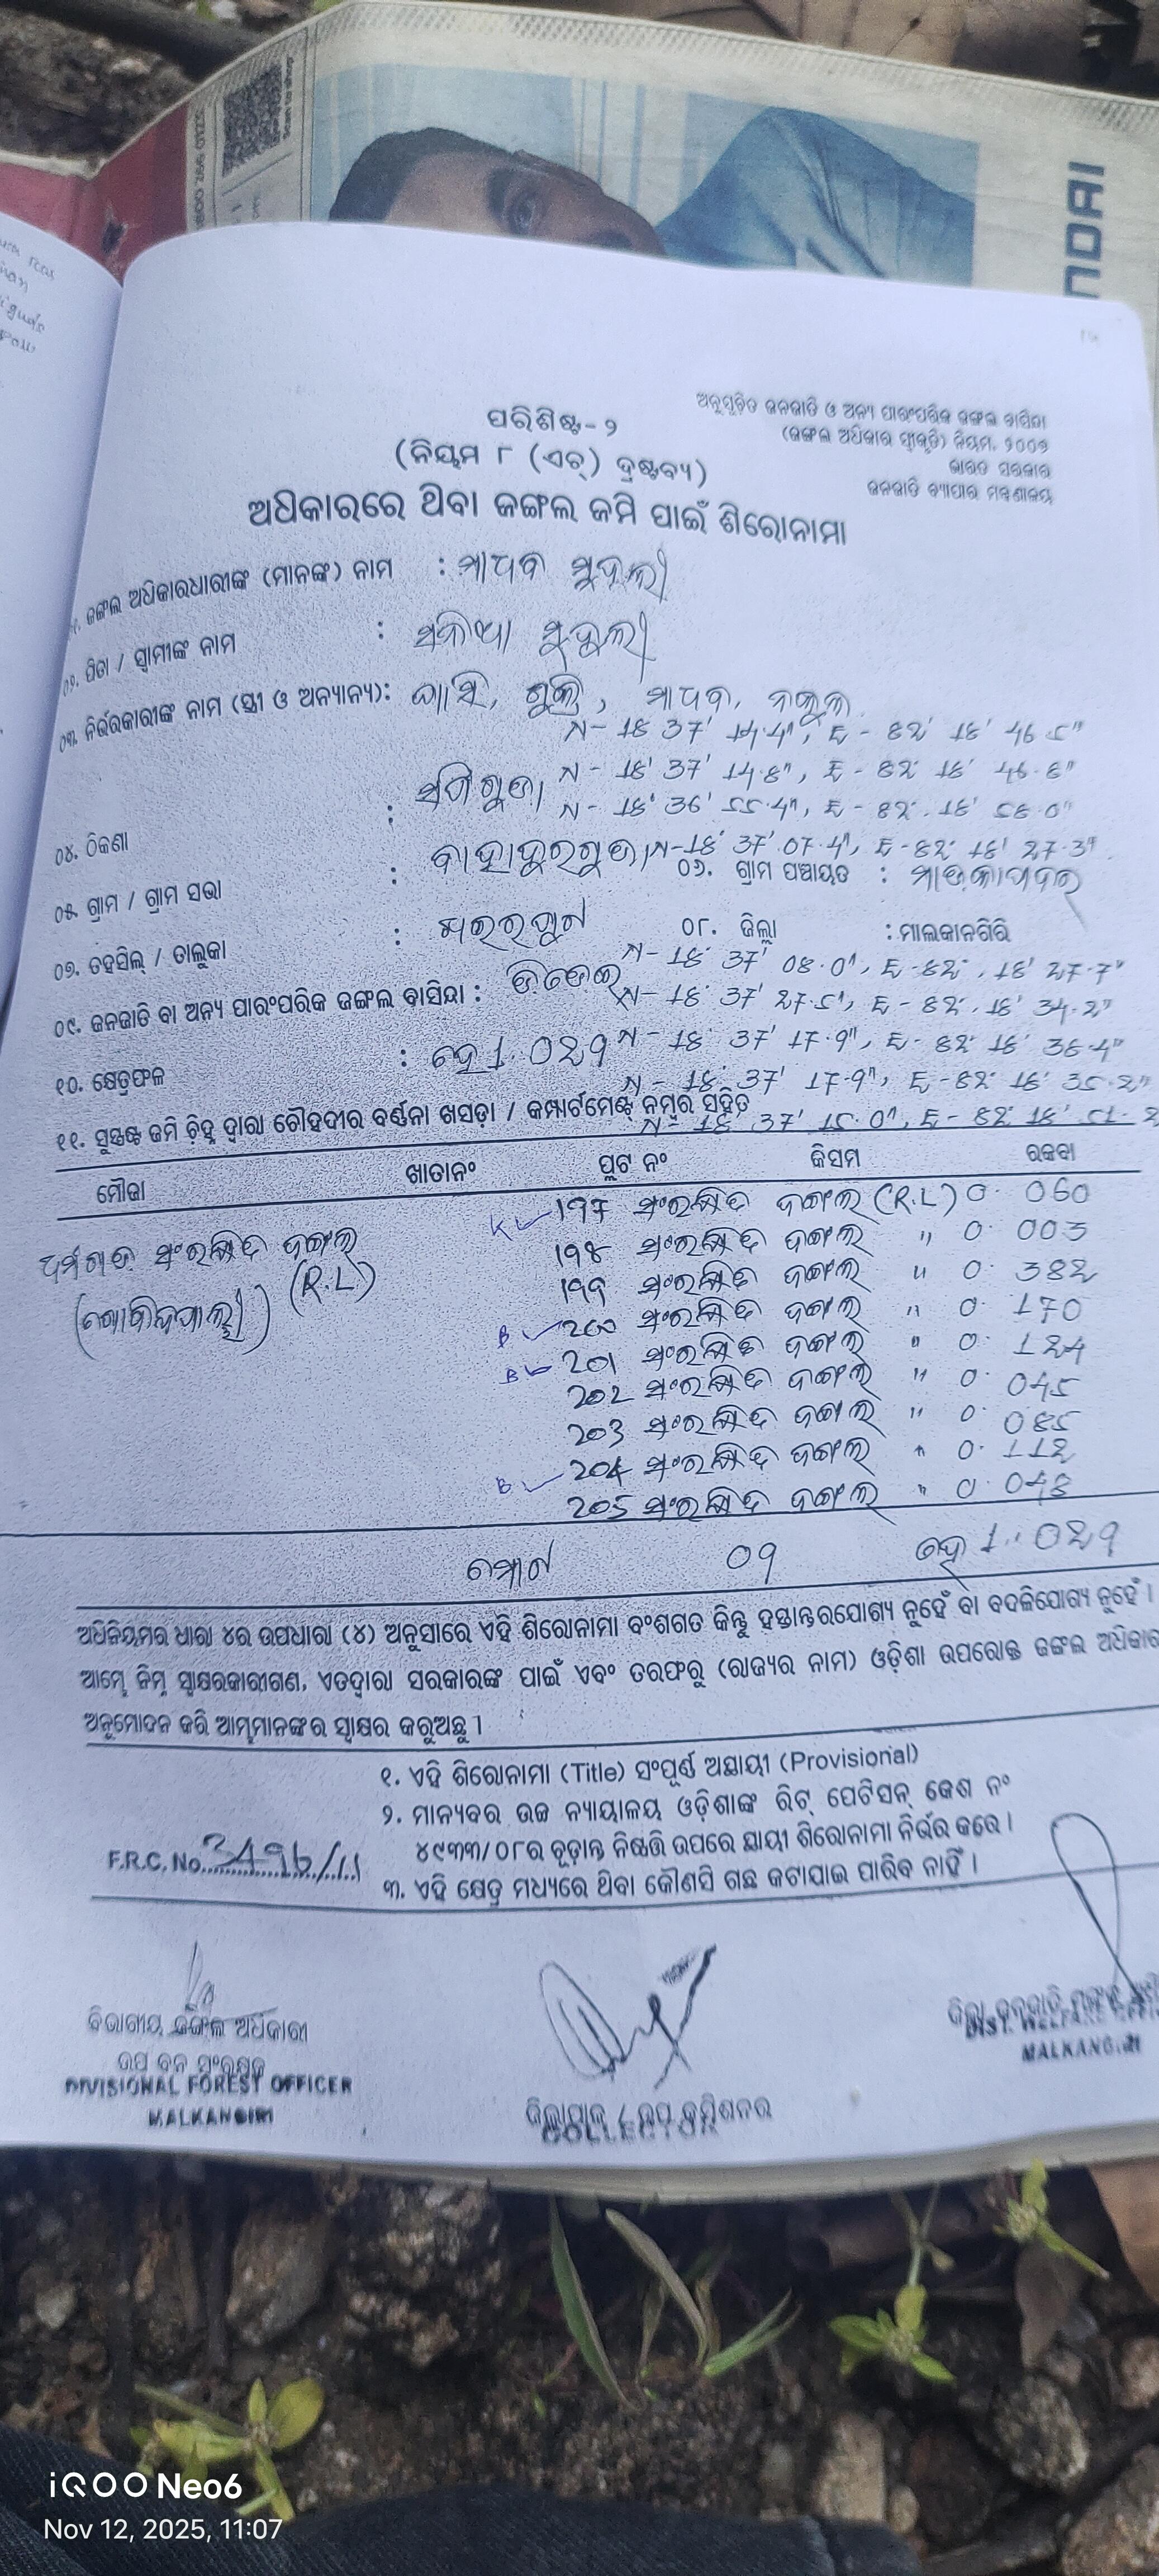 NDAI
ପରିଶିଷ୍ଟ-୨
(ନିୟମ ୮ (ଏଚ୍) ଦ୍ରଷ୍ଟବ୍ୟ)
ଅନୁସୂଚିତ ଜନଜାତି ଓ ଅନ୍ୟ ପାରଂପରିକ ଜଙ୍ଗଲ ବାସିନ୍ଦା
(ଜଙ୍ଗଲ ଅଧିକାର ସ୍ବୀକୃତି) ନିୟମ, ୨୦୦୭
ଭାରତ ସରକାର
ଜନଜାତି ବ୍ୟାପାର ମନ୍ତ୍ରଣାଳୟ
ଅଧିକାରରେ ଥିବା ଜଙ୍ଗଲ ଜମି ପାଇଁ ଶିରୋନାମା
ଜଙ୍ଗଲ ଅଧିକାରଧାରୀଙ୍କ (ମାନଙ୍କ) ନାମ : ମାଧବ ମୁଦୁଲୀ
୦୨. ପିତା / ସ୍ବାମୀଙ୍କ ନାମ : ମୁଦୁଲୀ
୦୩. ନିର୍ଭରକାରୀଙ୍କ ନାମ (ସ୍ତ୍ରୀ ଓ ଅନ୍ୟାନ୍ୟ): ମାଧବ, ନକୁଳ
N- 18 37' 14.4", E - 82' 18' 46.5"
N- 18' 37' 14.8", E- 82' 18' 46.8"
N- 18' 36' 55.4", E- 82'. 18' 58.0"
୦୪. ଠିକଣା :
୦୫. ଗ୍ରାମ / ଗ୍ରାମ ସଭା : ବାହାଦୁରଗୁଡା N-18' 37' 07.4", E-82' 18' 27.3"
୦୬. ଗ୍ରାମ ପଞ୍ଚାୟତ :
୦୭. ତହସିଲ୍ / ତାଲୁକା : ୦୮. ଜିଲ୍ଲା : ମାଲକାନଗିରି
N- 18' 37' 08.0", E-82', 18' 27.7"
୦୯. ଜନଜାତି ବା ଅନ୍ୟ ପାରଂପରିକ ଜଙ୍ଗଲ ବାସିନ୍ଦା : N- 18' 37' 27.5", E- 82'. 18' 34.2"
୧୦. କ୍ଷେତ୍ରଫଳ : ହେ 1. 029 N- 18' 37' 17.9", E- 82' 18' 36.4"
N- 18' 37' 17.9", E-82' 18' 35.2"
୧୧. ସୁସ୍ପଷ୍ଟ ଜମି ଚିହ୍ନ ଦ୍ବାରା ଚୌହଦୀର ବର୍ଣ୍ଣନା ଖସଡ଼ା / କମ୍ପାର୍ଟମେଣ୍ଟ ନମ୍ବର ସହିତ
N- 18' 37' 15.0", E- 82' 18' 51.2
ମୌଜା ଖାତାନଂ ପ୍ଲଟ ନଂ କିସମ ରକବା
ସଂରକ୍ଷିତ ଜଙ୍ଗଲ (R.L)
197 ସଂରକ୍ଷିତ ଜଙ୍ଗଲ (R.L) 0. 060
198 ସଂରକ୍ଷିତ ଜଙ୍ଗଲ " 0. 003
199 ସଂରକ୍ଷିତ ଜଙ୍ଗଲ " 0. 382
B 200 ସଂରକ୍ଷିତ ଜଙ୍ଗଲ " 0. 170
B 201 ସଂରକ୍ଷିତ ଜଙ୍ଗଲ " 0. 124
202 ସଂରକ୍ଷିତ ଜଙ୍ଗଲ " 0. 045
203 ସଂରକ୍ଷିତ ଜଙ୍ଗଲ " 0. 085
B 204 ସଂରକ୍ଷିତ ଜଙ୍ଗଲ " 0. 112
205 ସଂରକ୍ଷିତ ଜଙ୍ଗଲ " 0. 048
ମୋଟ 09 ହେ 1. 029
ଅଧିନିୟମର ଧାରା ୪ର ଉପଧାରା (୪) ଅନୁସାରେ ଏହି ଶିରୋନାମା ବଂଶଗତ କିନ୍ତୁ ହସ୍ତାନ୍ତରଯୋଗ୍ୟ ନୁହେଁ ବା ବଦଳିଯୋଗ୍ୟ ନୁହେଁ ।
ଆମ୍ଭେ ନିମ୍ନ ସ୍ବାକ୍ଷରକାରୀଗଣ, ଏତଦ୍ବାରା ସରକାରଙ୍କ ପାଇଁ ଏବଂ ତରଫରୁ (ରାଜ୍ୟର ନାମ) ଓଡ଼ିଶା ଉପରୋକ୍ତ ଜଙ୍ଗଲ ଅଧିକାର
ଅନୁମୋଦନ କରି ଆମ୍ଭମାନଙ୍କର ସ୍ବାକ୍ଷର କରୁଅଛୁ ।
୧. ଏହି ଶିରୋନାମା (Title) ସଂପୂର୍ଣ୍ଣ ଅସ୍ଥାୟୀ (Provisional)
୨. ମାନ୍ୟବର ଉଚ୍ଚ ନ୍ୟାୟାଳୟ ଓଡ଼ିଶାଙ୍କ ରିଟ୍ ପେଟିସନ୍ କେଶ ନଂ
୪୯୩୩/୦୮ର ଚୂଡ଼ାନ୍ତ ନିଷ୍ପତ୍ତି ଉପରେ ସ୍ଥାୟୀ ଶିରୋନାମା ନିର୍ଭର କରେ ।
F.R.C. No. /11
୩. ଏହି କ୍ଷେତ୍ର ମଧ୍ୟରେ ଥିବା କୌଣସି ଗଛ କଟାଯାଇ ପାରିବ ନାହିଁ ।
ବିଭାଗୀୟ ଜଙ୍ଗଲ ଅଧିକାରୀ
ଉପ ବନ ସଂରକ୍ଷକ
DIVISIONAL FOREST OFFICER
MALKANGIRI
ଜିଲ୍ଲାପାଳ / ଉପ କମିଶନର
COLLECTOR
DIST. WELFARE
MALKANGIRI
iQOO Neo6
Nov 12, 2025, 11:07